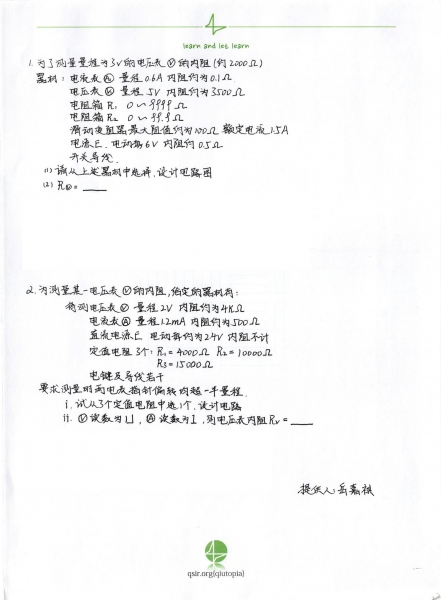 learn and let learn
1. 为了测量量程为3V的电压表Ⓥ的内阻(约2000Ω)
器材：电流表Ⓐ 量程0.6A 内阻约为0.1Ω
电压表Ⓥ 量程 5V 内阻约为3500Ω
电阻箱R₁ 0~9999Ω
电阻箱R₂ 0~99.9Ω
滑动变阻器最大阻值约为100Ω 额定电流1.5A
电源E. 电动势6V 内阻约0.5Ω
开关导线.
(1) 请从上述器材中选择,设计电路图
(2) RⓋ= ____
2. 为测量某一电压表Ⓥ的内阻,给定的器材有:
待测电压表Ⓥ 量程2V 内阻约为4KΩ
电流表Ⓐ 量程1.2mA 内阻约为500Ω
直流电源E 电动势约为2.4V 内阻不计
定值电阻3个: R₁=4000Ω R₂=10000Ω
R₃=15000Ω
电键及导线若干
要求测量时两电表指针偏转均超一半量程.
i. 试从3个定值电阻中选1个,设计电路
ii. Ⓥ读数为U, Ⓐ读数为I, 则电压表内阻Rv= ____
提供人 岳嘉祺
qsir.org{qiutopia}